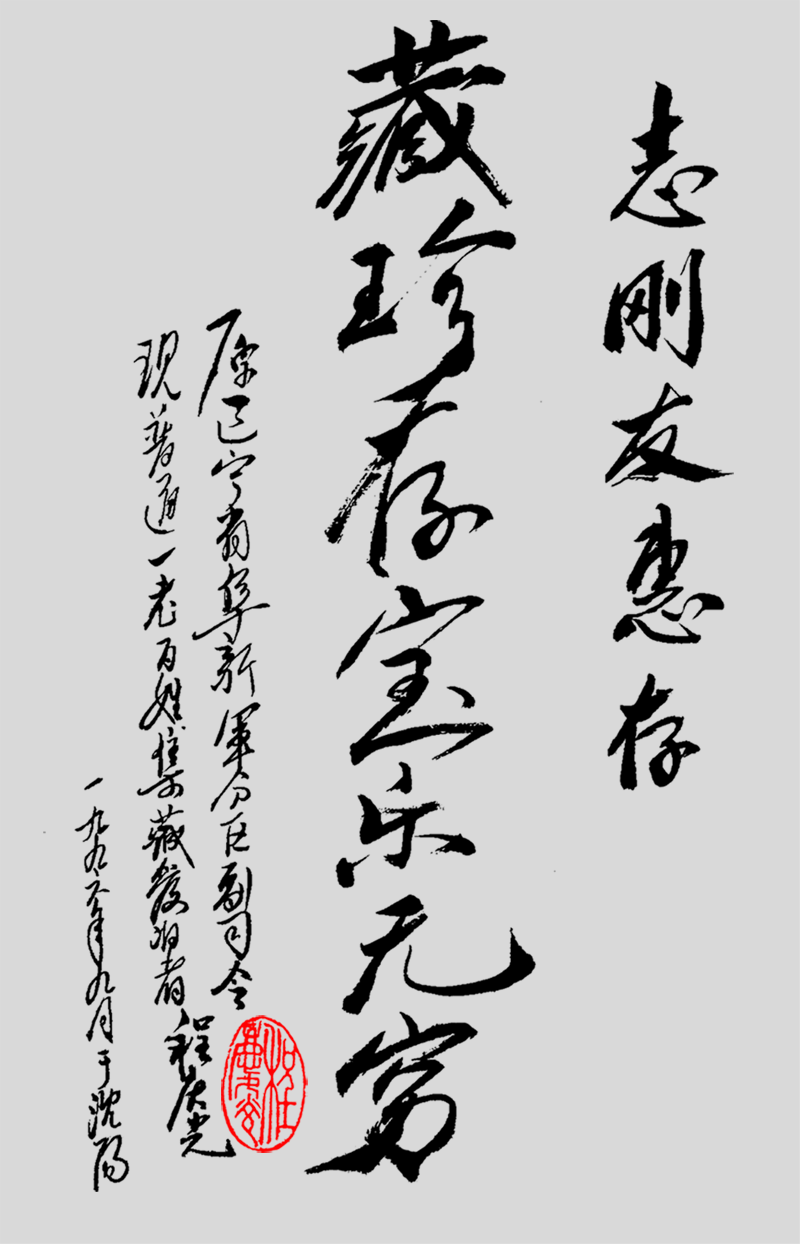 志刚友惠存
藏珍存宝乐无穷
原辽宁省阜新军分区副司令
现普通一老百姓集藏爱好者
程庆光
一九九六年九月于沈阳